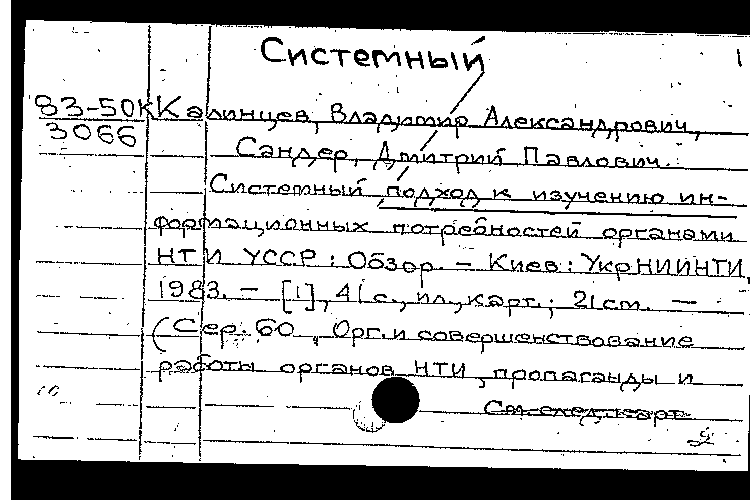 Системный
1
83-50К Калинцев, Владимир Александрович,
3066
Сандер, Дмитрий Павлович.
Системный подход к изучению ин-
формационных потребностей органами
НТИ УССР : Обзор. — Киев : УкрНИИНТИ,
1983. — [1], 41 с., ил., карт. ; 21 см. —
(Сер. 60, Орг. и совершенствование
работы органов НТИ, пропаганды и
См. след. карт